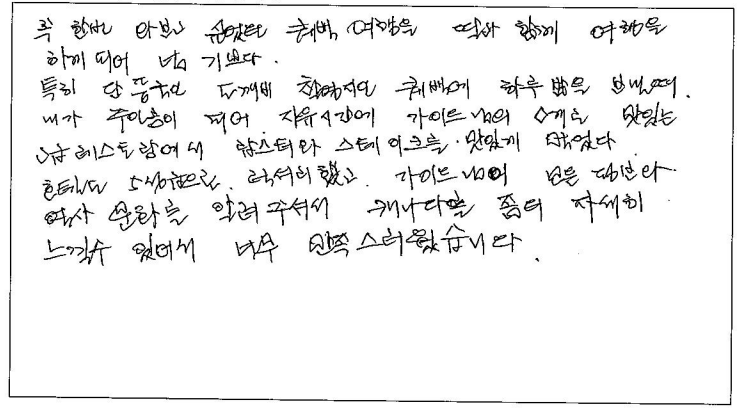 꼭 한번 와보고 싶었던 퀘벡 여행을 딸과 함께 여행을
하게 되어 넘 기쁘다.
특히 단풍국인 도깨비 촬영지인 퀘벡에 하루밤을 보내며.
내가 주인공이 되어 자유시간에 가이드님의 소개로 맛있는
고급 레스토랑에서 랍스터와 스테이크를 맛있게 먹었다
호텔도 5성급으로 럭셔리했고. 가이드님의 모든 정보와
역사 문화를 알려주셔서 캐나다를 좀더 자세히
느낄수 있어서 너무 만족스러웠습니다.